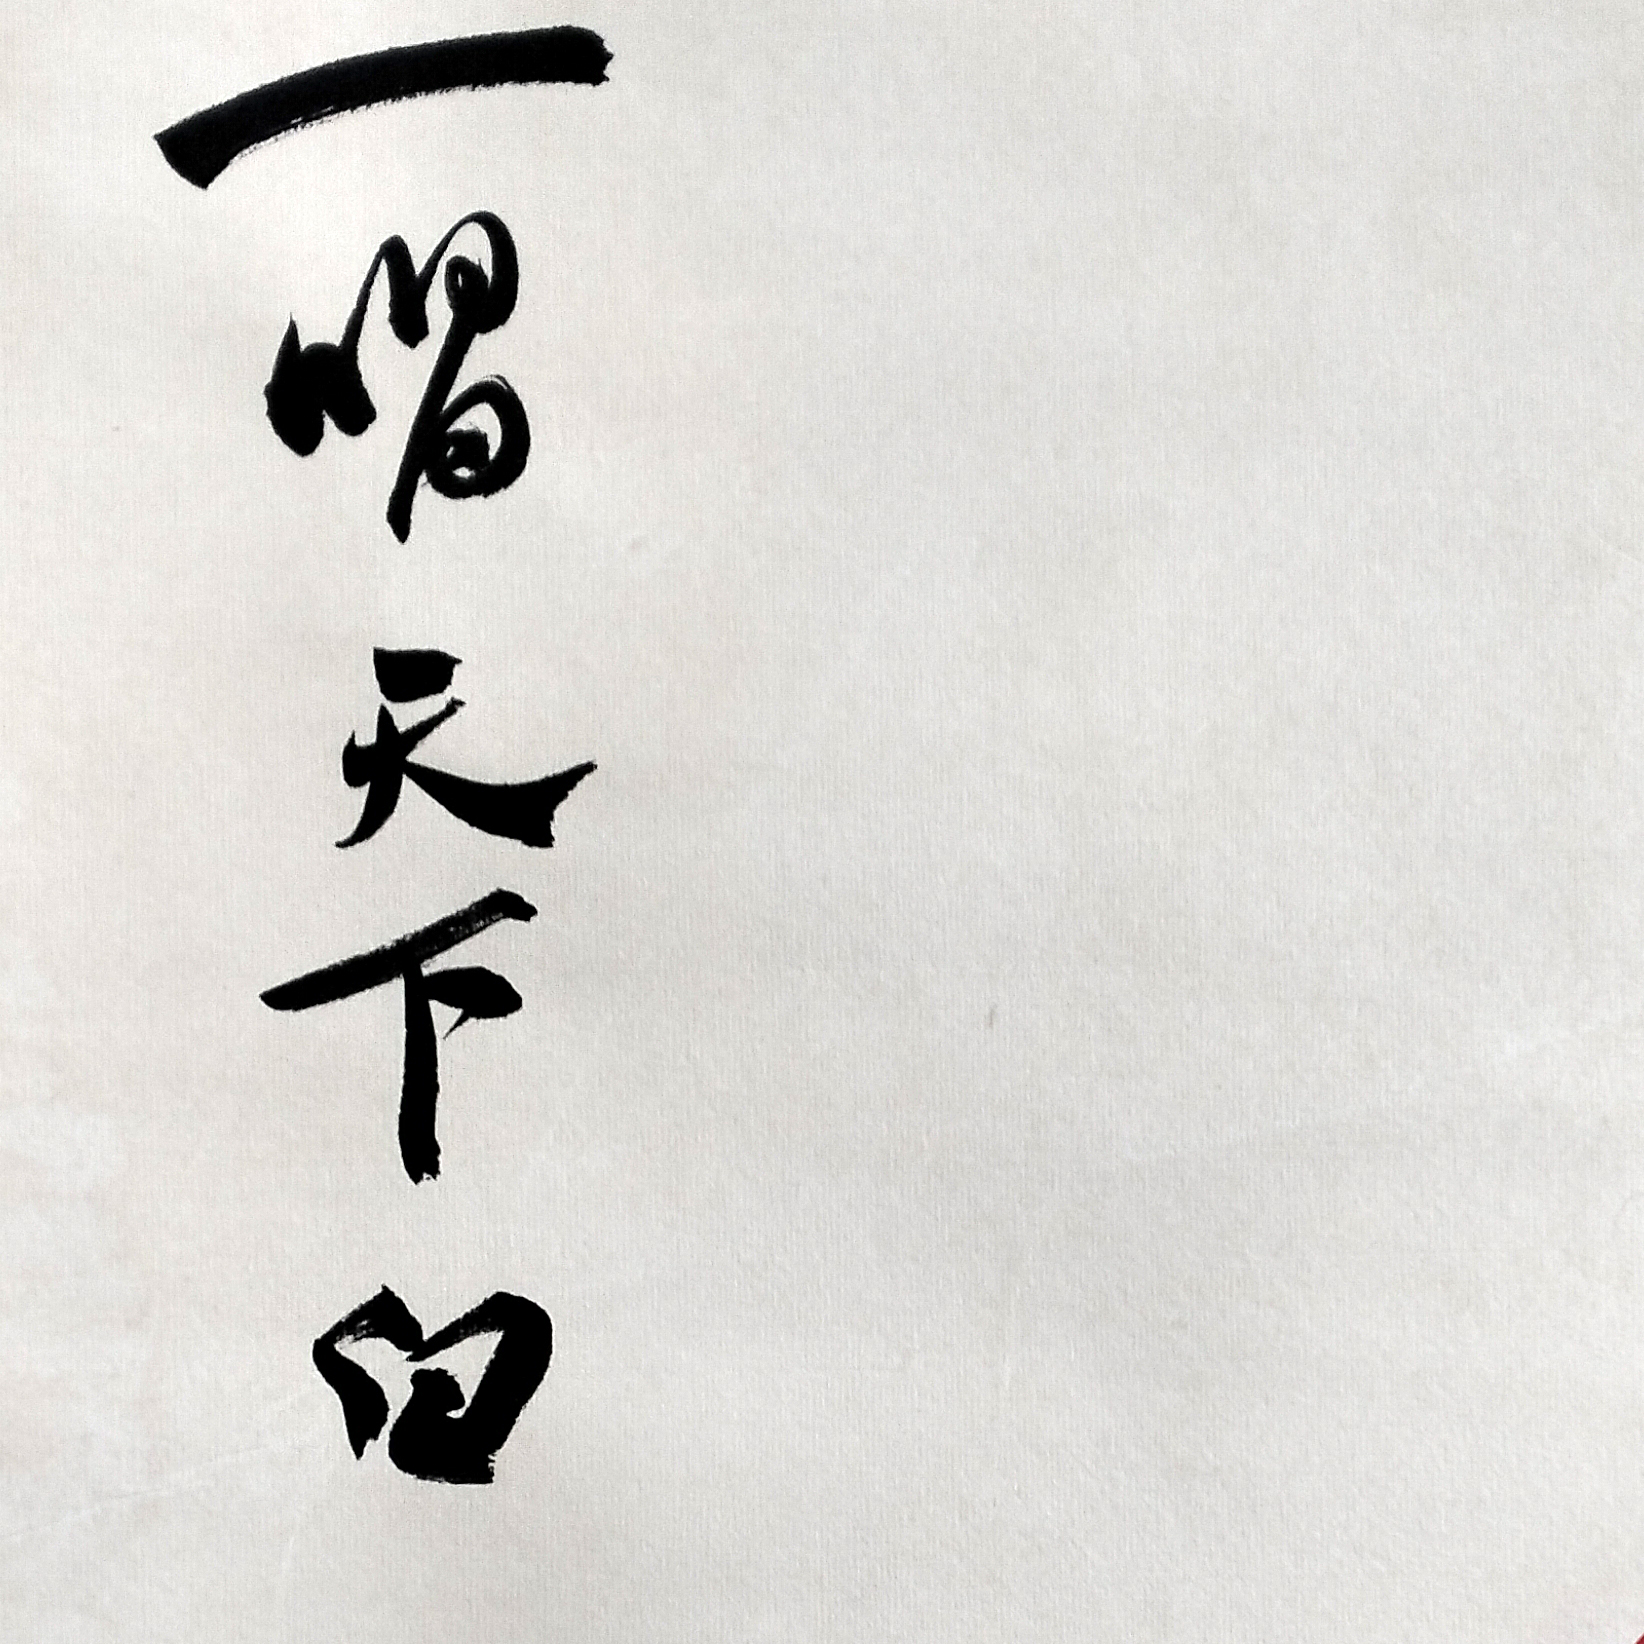 一唱天下白